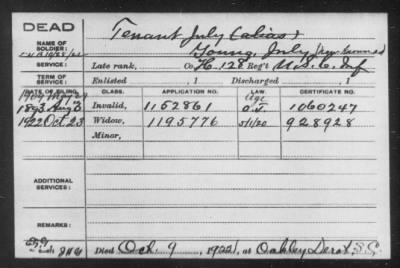 DEAD
NAME OF SOLDIER:
Tenant July (alias)
Young, July
SERVICE:
Late rank, Co. H. 128 Reg't U.S.C. Inf
TERM OF SERVICE:
Enlisted , 1 Discharged , 1
DATE OF FILING. CLASS. APPLICATION NO. LAW. CERTIFICATE NO.
1909 Age
1893 Aug 3 Invalid, 1152861 O.J. 1060247
1922 Oct 23 Widow, 1195776 5/1/20 928928
Minor,
ADDITIONAL SERVICES:
REMARKS:
Died Oct. 9, 1922, at Oakley Depot, S.C.